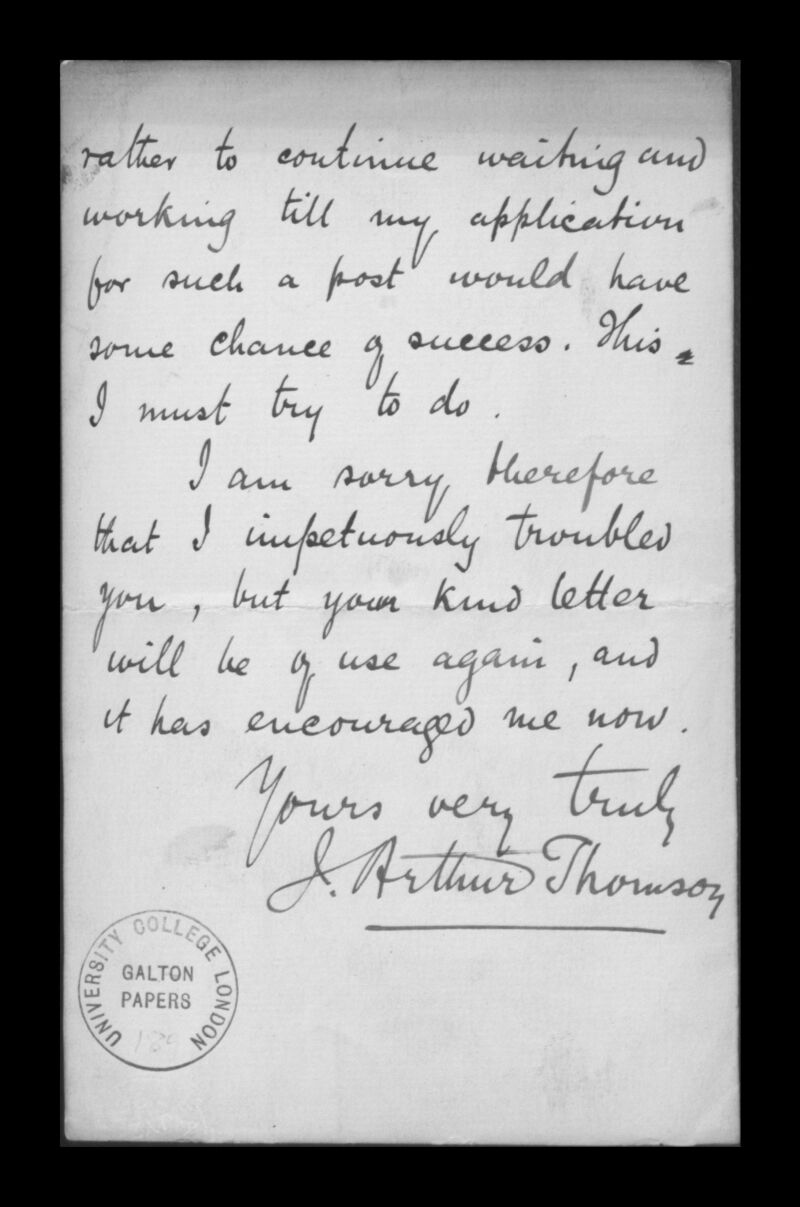 rather to continue waiting and
working till my application
for such a post would have
some chance of success. This
I must try to do.
I am sorry therefore
that I impetuously troubled
you, but your kind letter
will be of use again, and
it has encouraged me now.
Yours very truly
J. Arthur Thomson
UNIVERSITY COLLEGE LONDON
GALTON
PAPERS